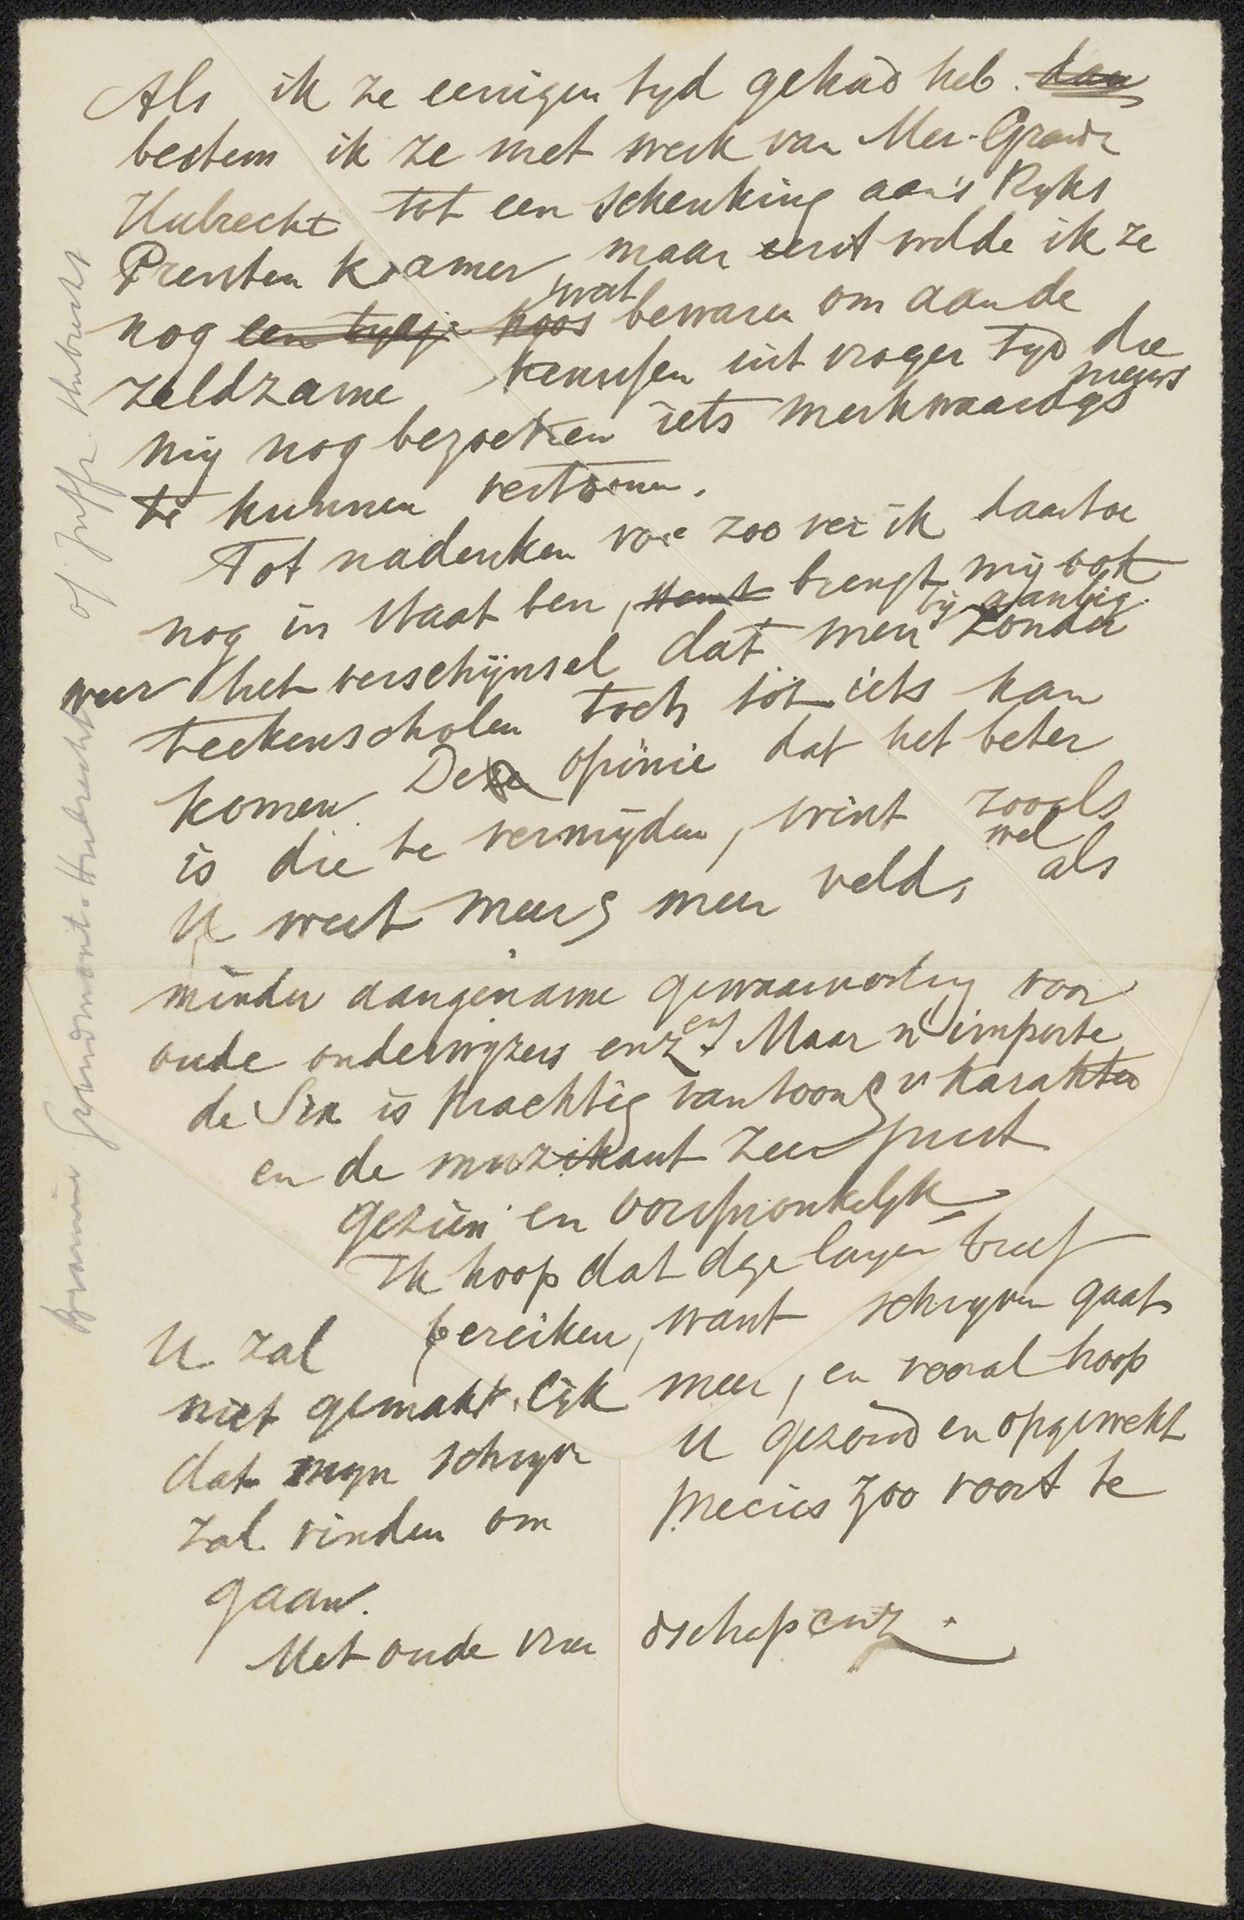 Als ik ze eenigen tyd gehad heb. dan
bestem ik ze met werk van Mer. Grandt
Hubrecht tot een schenking aan's Ryks
Prenten kamer, maar eerst wilde ik ze
nog een tydje wat bewaren om aan de
zeldzame kennissen uit vroger tyd die
mij nog bezoeken iets merkwaardigs nieuws
te kunnen vertoonen.
Tot nadenken voor zoo ver ik daartoe
nog in staat ben, brengt mij ook
weer het verschijnsel dat men bij aanleg zonder
teekenscholen toch tot iets kan
komen. Deze opinie dat het beter
is die te vermyden, wint zooals
U weet meer & meer veld, wel als
minder aangename gewaarwording voor
oude onderwyzers enz. Maar n'importe
de Six is prachtig van toon & v karakter
en de muzikant zeer juist
gezien en oorspronkelyk
Ik hoop dat deze lange brief
U zal bereiken, want schryven gaat
niet gemakkelijk meer, en vooral hoop
dat myn schryven U gezond en opgewekt
zal vinden om precies zoo voort te
gaan.
Met oude vriendschap enz.
Bramine Grandmont-Hubrecht
of Juffr. Hubrecht